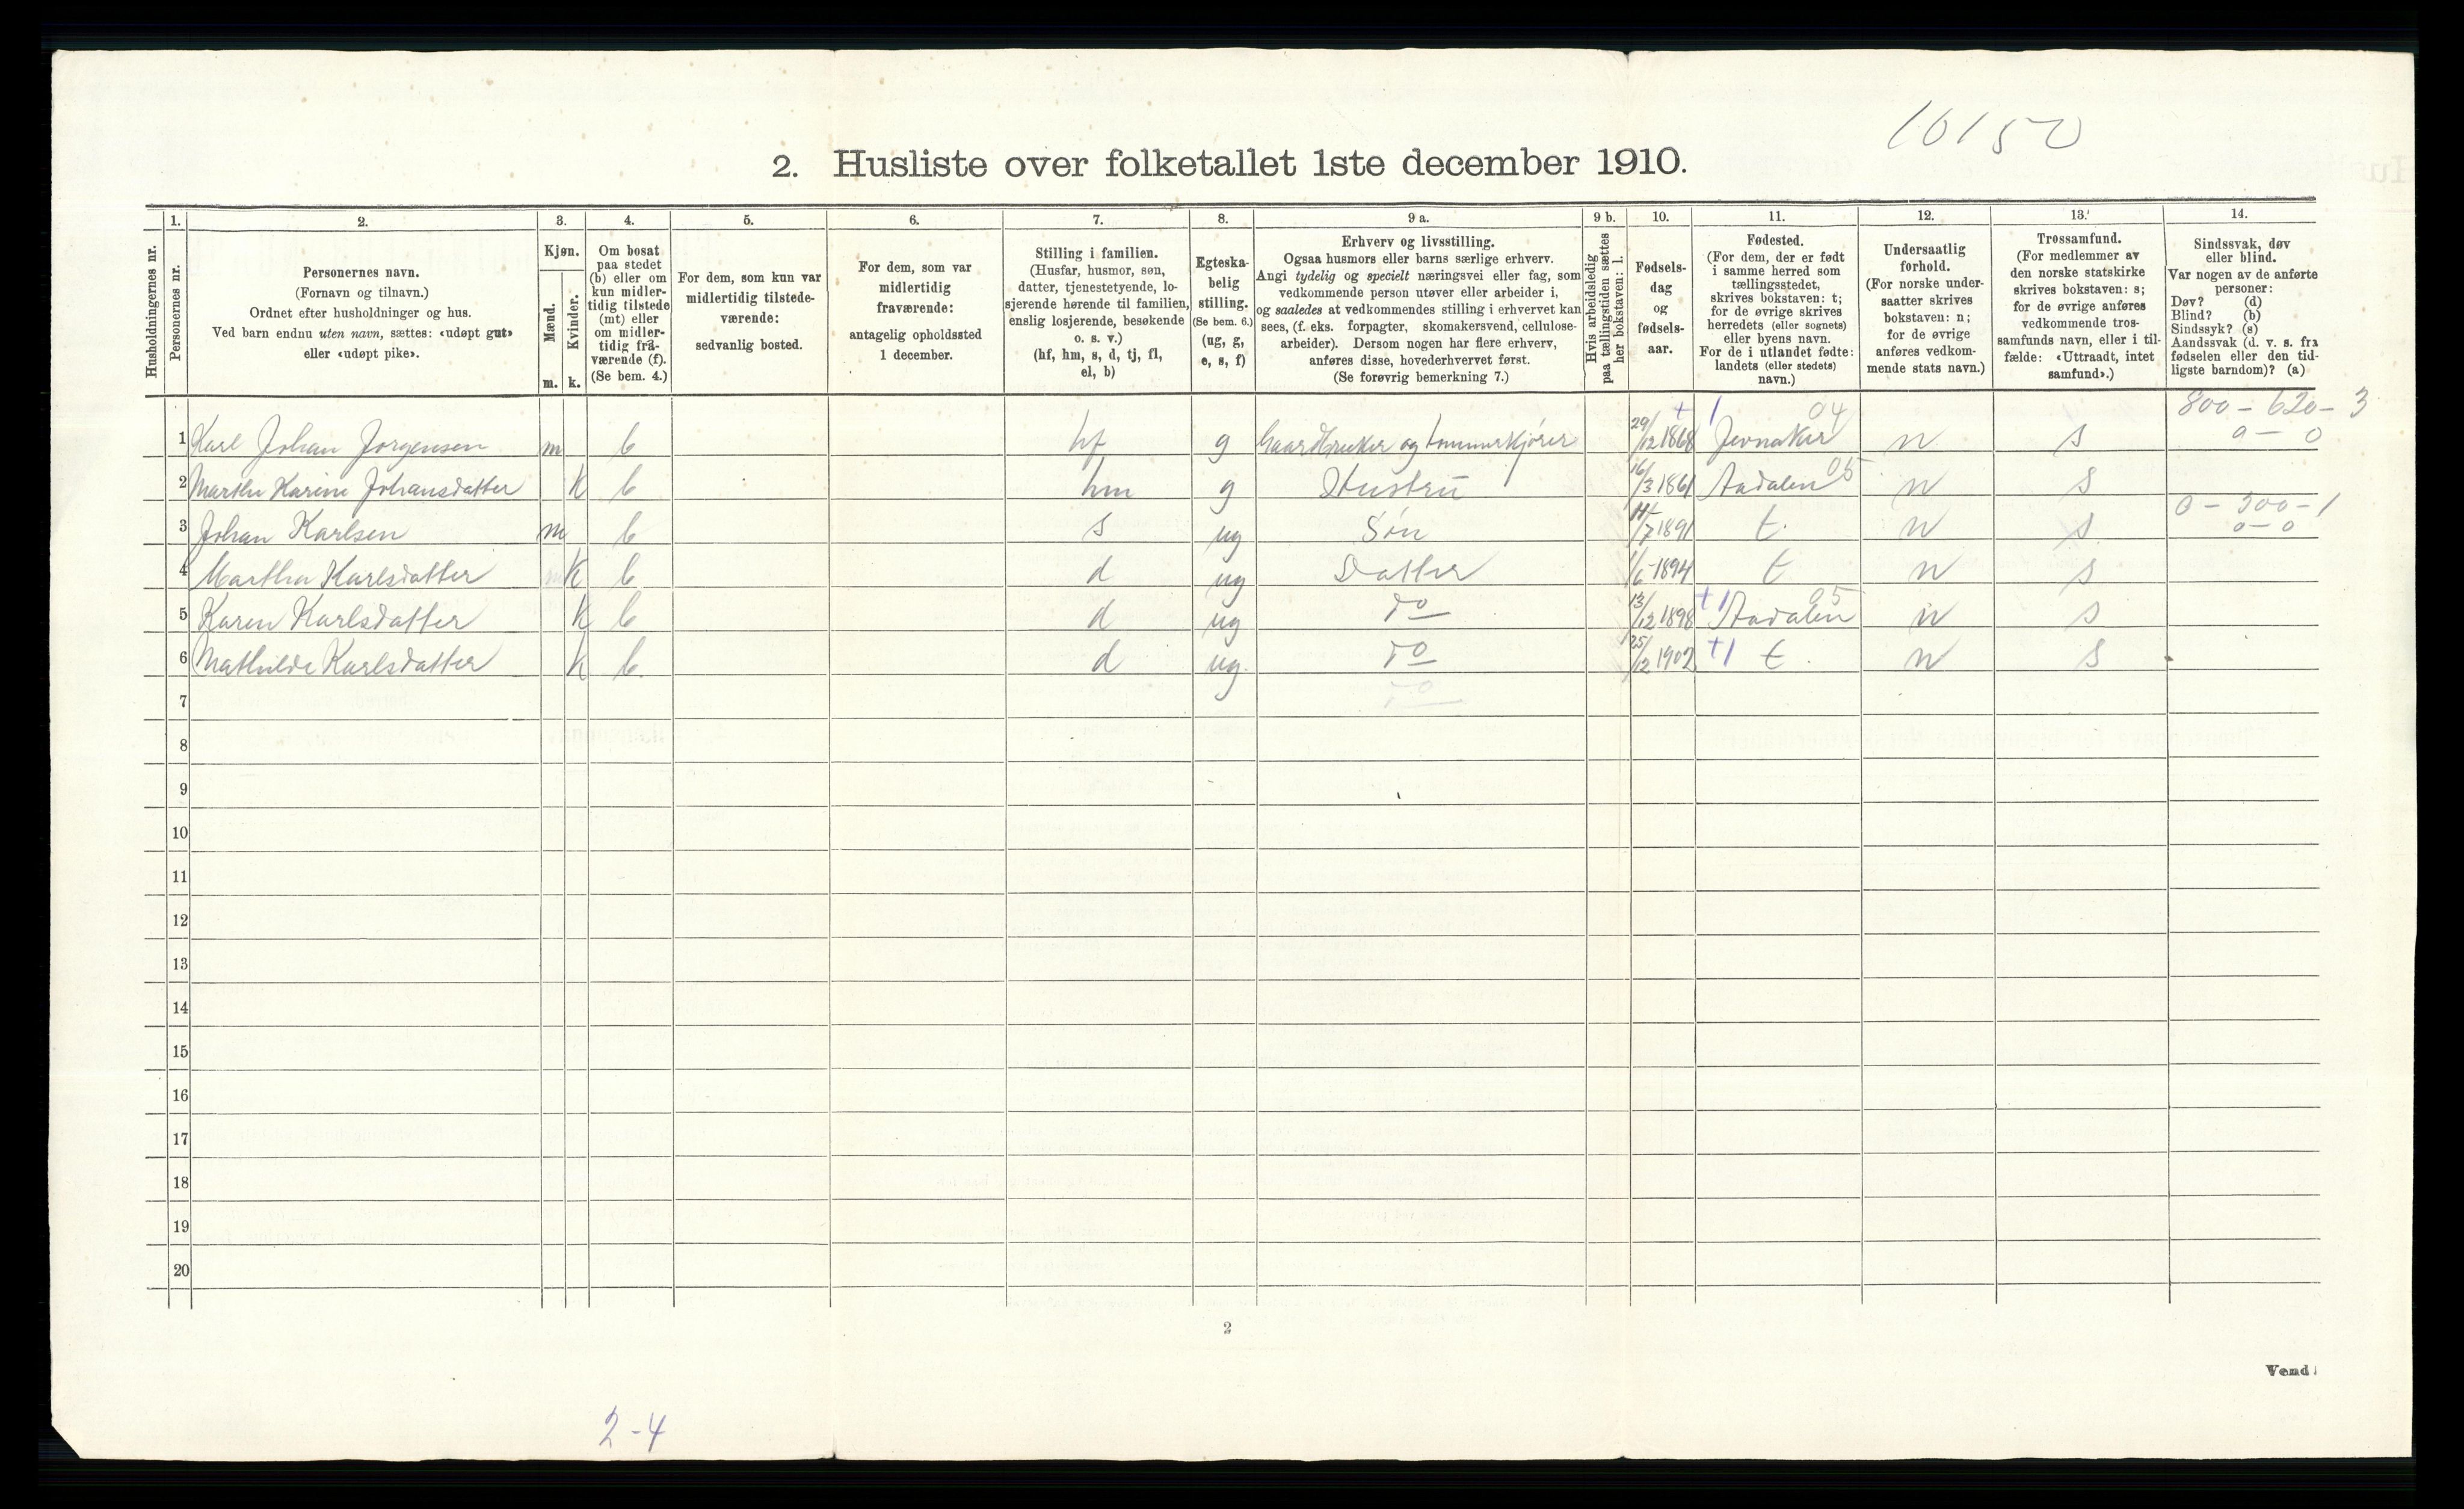 10150
2. Husliste over folketallet 1ste december 1910.
1. 2. 3. 4. 5. 6. 7. 8. 9 a. 9 b. 10. 11. 12. 13. 14.
Husholdningernes nr.
Personernes nr.
Personernes navn.
(Fornavn og tilnavn.)
Ordnet efter husholdninger og hus.
Ved barn endnu uten navn, sættes: «udøpt gut»
eller «udøpt pike».
Kjøn.
Mænd.
Kvinder.
m. k.
Om bosat
paa stedet
(b) eller om
kun midler-
tidig tilstede
(mt) eller
om midler-
tidig fra-
værende (f).
(Se bem. 4.)
For dem, som kun var
midlertidig tilstede-
værende:
sedvanlig bosted.
For dem, som var
midlertidig
fraværende:
antagelig opholdssted
1 december.
Stilling i familien.
(Husfar, husmor, søn,
datter, tjenestetyende, lo-
sjerende hørende til familien,
enslig losjerende, besøkende
o. s. v.)
(hf, hm, s, d, tj, fl,
el, b)
Egteska-
belig
stilling.
(Se bem. 6.)
(ug, g,
e, s, f)
Erhverv og livsstilling.
Ogsaa husmors eller barns særlige erhverv.
Angi tydelig og specielt næringsvei eller fag, som
vedkommende person utøver eller arbeider i,
og saaledes at vedkommendes stilling i erhvervet kan
sees, (f. eks. forpagter, skomakersvend, cellulose-
arbeider). Dersom nogen har flere erhverv,
anføres disse, hovederhvervet først.
(Se forøvrig bemerkning 7.)
Hvis arbeidsledig
paa tællingstiden sættes
her bokstaven: l.
Fødsels-
dag
og
fødsels-
aar.
Fødested.
(For dem, der er født
i samme herred som
tællingsstedet,
skrives bokstaven: t;
for de øvrige skrives
herredets (eller sognets)
eller byens navn.
For de i utlandet fødte:
landets (eller stedets)
navn.)
Undersaatlig
forhold.
(For norske under-
saatter skrives
bokstaven: n;
for de øvrige
anføres vedkom-
mende stats navn.)
Trossamfund.
(For medlemmer av
den norske statskirke
skrives bokstaven: s;
for de øvrige anføres
vedkommende tros-
samfunds navn, eller i til-
fælde: «Uttraadt, intet
samfund».)
Sindssvak, døv
eller blind.
Var nogen av de anførte
personer:
Døv? (d)
Blind? (b)
Sindssyk? (s)
Aandssvak (d. v. s. fra
fødselen eller den tid-
ligste barndom)? (a)
+ 1 04 800 - 620 - 3
1 Karl Johan Jorgensen m b hf g Gaardbruker og tømmerkjører 29/12 1868 Jevnaker n s 0 - 0
2 Marthe Karine Johansdatter K b hm g Hustru 16/3 1861 Aadalen 05 n s
0 - 300 - 1
3 Johan Karlsen m b s ug Søn 11/7 1891 t. n s 0 - 0
4 Martha Karlsdatter K b d ug Datter 1/6 1894 t n s
5 Karen Karlsdatter K b d ug Do 13/12 1898 +1 Aadalen 05 n s
6 Mathilde Karlsdatter K b. d ug. Do 25/12 1902 +1 t. n s
7
8
9
10
11
12
13
14
15
16
17
18
19
20
2
Vend
2-4